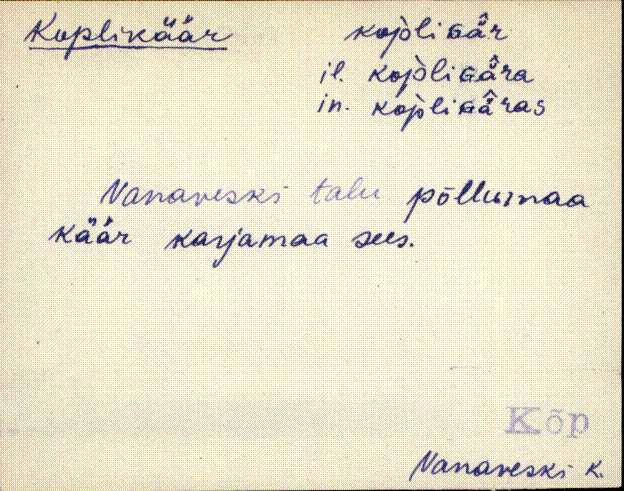 Koplikäär kop̀liɢä̂r
il. kop̀liɢä̂ra
in. kop̀liɢä̂ras
Vanaveski talu põllumaa
käär karjamaa sees.
Kõp
Vanaveski K.